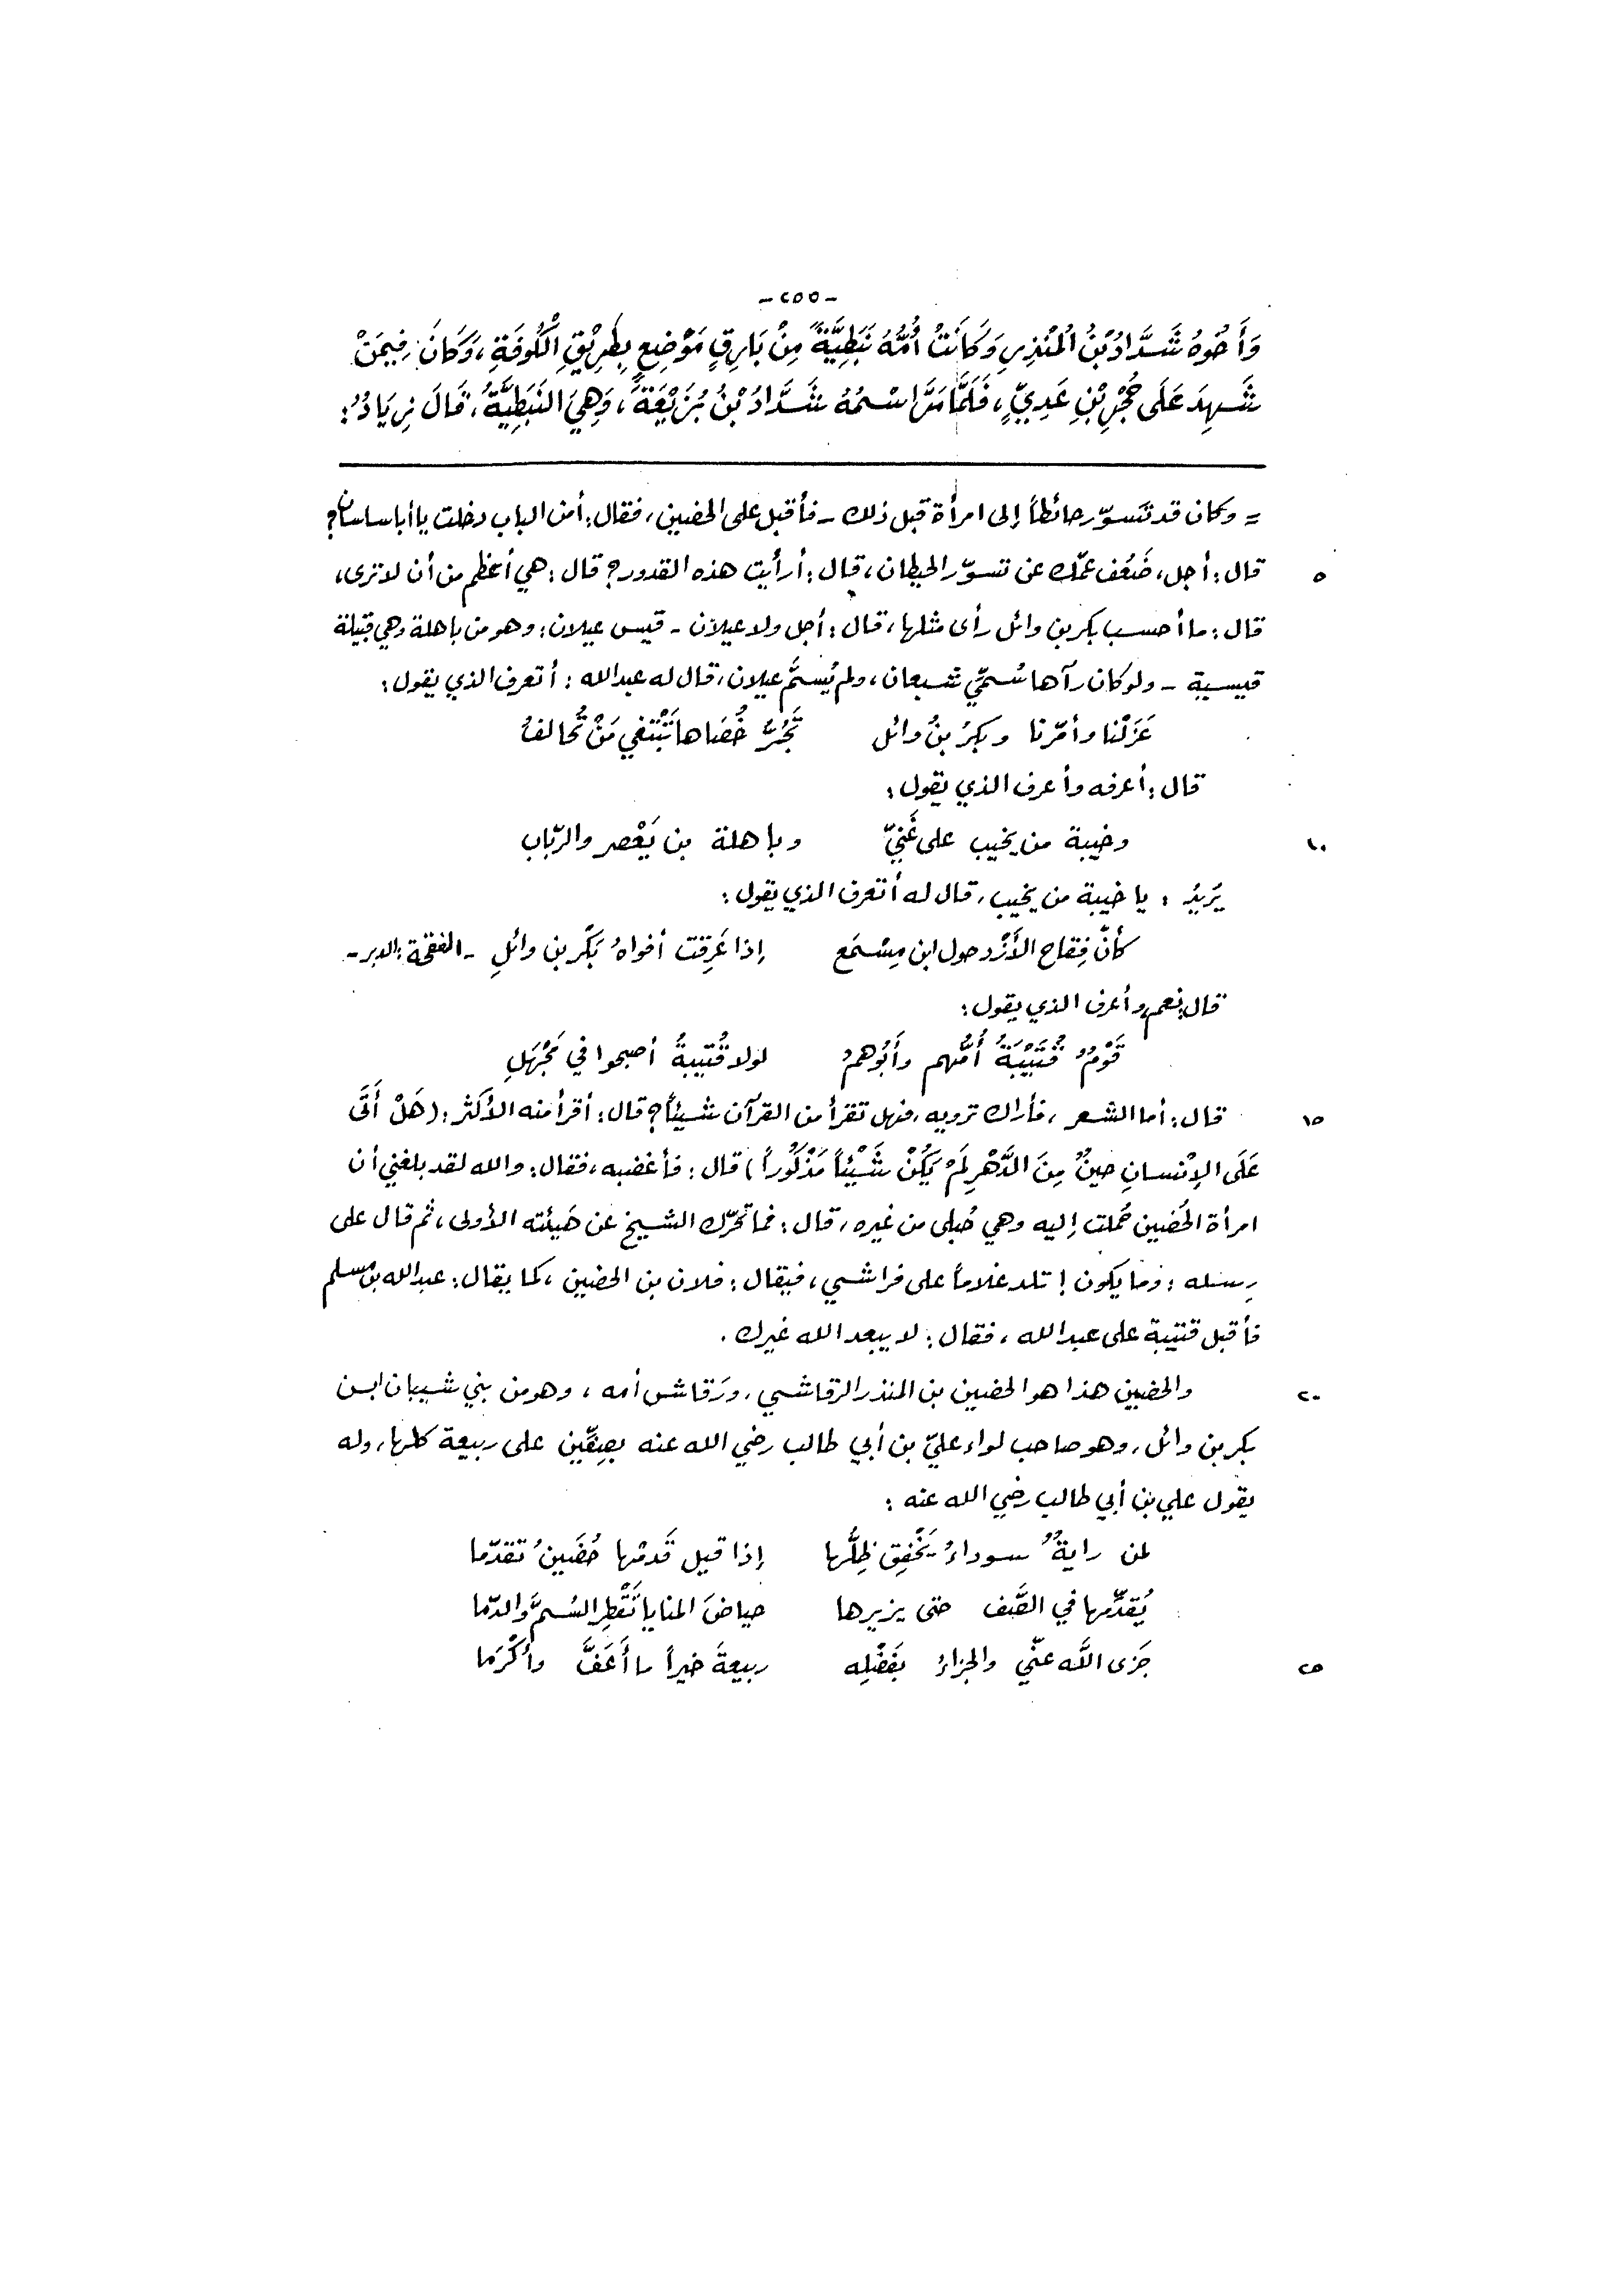 -٢٥٥-
وَأَخُوهُ شَدَّادُ بْنُ الْمُنْذِرِ وَكَانَتْ أُمُّهُ نَبَطِيَّةً مِنْ بَارِقٍ مَوْضِعٍ بِطَرِيْقِ الْكُوفَةِ، وَكَانَ فِيمَنْ
شَهِدَ عَلَى حُجْرِ بْنِ عَدِيٍّ، فَلَمَّا مَرَّ اسْمُهُ شَدَّادُ بْنُ بُزَيْعَةَ، وَهِيَ النَبَطِيَّةُ، قَالَ زِيَادٌ:
= وكان قد تسوّر حائطاً إلى امرأة قبل ذلك - فأقبل على الحضين، فقال: أمن الباب دخلت يا أبا ساسان؟
٥ قال: أجل، ضَعُف عمّك عن تسوّر الحيطان، قال: أرأيت هذه القدور؟ قال: هي أعظم من أن لا ترى،
قال: ما أحسب بكر بن وائل رأى مثلها، قال: أجل ولا عيلان - قيس عيلان: وهو من باهلة وهي قبيلة
قيسية - ولو كان رآها سُمّي شبعان، ولم يُسمَّ عيلان، قال له عبدالله: أتعرف الذي يقول:
عَزَلْنا وأمّرنا وبكرُ بنُ وائل تَجُرُّ خُصَاها تَبْتَغي مَنْ تُحالفُ
قال: أعرفه وأعرف الذي يقول:
١٠ وخيبة من يخيب على غَنِيّ وباهلة بن يَعْصر والرّباب
يَريدُ: يا خيبة من يخيب، قال له أتعرف الذي يقول:
كأنّ فِقاح الأَزْد حول ابن مِسْمَع إذا عَرِقت أفواهُ بَكْر بن وائلِ - الفقحة: الدبر -
قال: نعم وأعرف الذي يقول:
قَوْمٌ قُتَيْبَةُ أُمُّهم وأَبُوهمُ لولا قُتيبةُ أصبحوا في مَجْهَلِ
١٥ قال: أما الشعر، فأراك ترويه، فهل تقرأ من القرآن شيئاً؟ قال: أقرأ منه الأكثر: (هَلْ أَتَى
عَلَى الإِنْسانِ حِينٌ مِنَ الدَّهْرِ لَمْ يَكُنْ شَيْئاً مَذْكُوراً) قال: فأغضبه، فقال: والله لقد بلغني أن
امرأة الحُضين حُملت إليه وهي حُبلى من غيره، قال: فما تحرّك الشيخ عن هَيئته الأولى، ثم قال على
رِسله: وما يكون! تلد غلاماً على فراشي، فيقال: فلان بن الحضين، كما يقال: عبدالله بن مسلم
فأقبل قتيبة على عبدالله، فقال: لا يبعد الله غيرك.
٢٠ والحضين هذا هو الحضين بن المنذر الرقاشي، ورَقاش أمه، وهو من بني شيبان ابن
بكر بن وائل، وهو صاحب لواء عليّ بن أبي طالب رضي الله عنه بصِفّين على ربيعة كلها، وله
يقول علي بن أبي طالب رضي الله عنه:
لمن رايةٌ سوداءُ يَخْفِق ظِلُّها إذا قيل قَدمْها حُضَينُ تقدّما
يُقدِّمها في الصَّف حتى يزيرها حياضَ المنايا تَقْطِر السُمَّ والدّما
٢٥ جَزى اللَّه عنّي والجزاءُ بفَضْلِه ربيعةَ خيراً ما أَعَفَّ وأَكْرَما